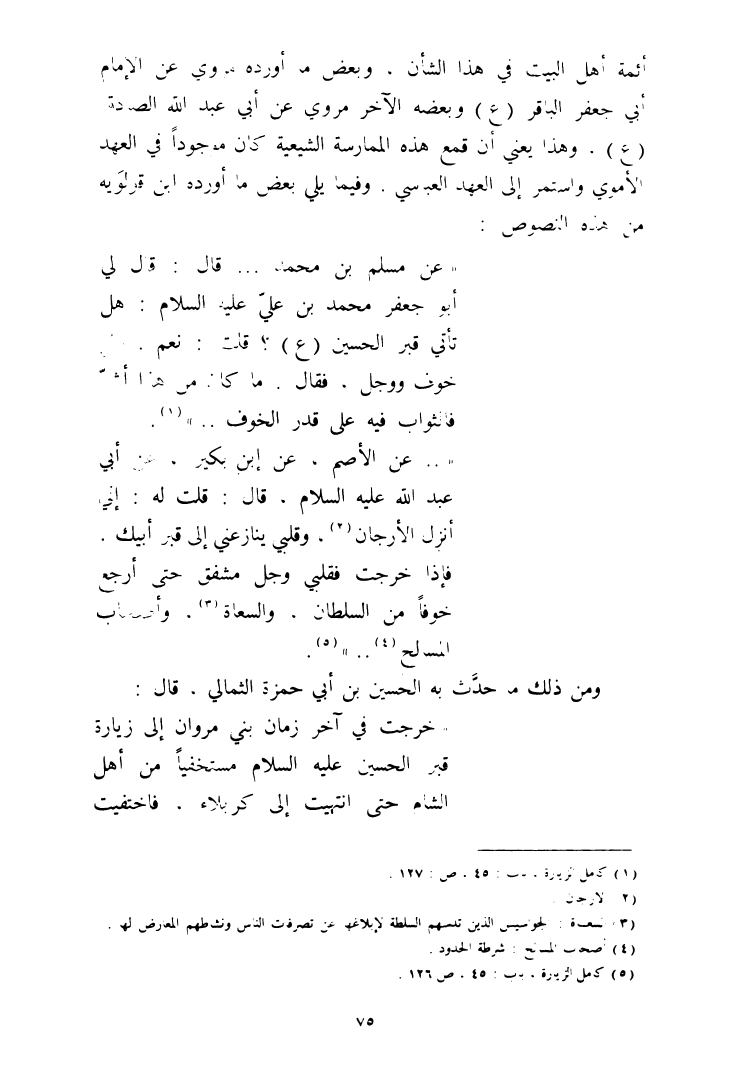 أئمة أهل البيت في هذا الشأن . وبعض ما أورده مروي عن الإمام
أبي جعفر الباقر (ع) وبعضه الآخر مروي عن أبي عبد الله الصادق
(ع) . وهذا يعني أن قمع هذه الممارسة الشيعية كان موجوداً في العهد
الأموي واستمر إلى العهد العباسي . وفيما يلي بعض ما أورده ابن قولَويه
من هذه النصوص :
« عن مسلم بن محمد ... قال : قال لي
أبو جعفر محمد بن عليّ عليه السلام : هل
تأتي قبر الحسين (ع) ؟ قلت : نعم .
خوف ووجل . فقال . ما كان من هذا أشدّ
فالثواب فيه على قدر الخوف .. »(١).
« .. عن الأصم . عن إبن بكير . عن أبي
عبد الله عليه السلام . قال : قلت له : إني
أنزل الأرجان(٢). وقلبي ينازعني إلى قبر أبيك .
فإذا خرجت فقلبي وجل مشفق حتى أرجع
خوفاً من السلطان . والسعاة(٣). وأصحاب
المسالح(٤).. »(٥).
ومن ذلك ما حدَّث به الحسين بن أبي حمزة الثمالي . قال :
« خرجت في آخر زمان بني مروان إلى زيارة
قبر الحسين عليه السلام مستخفياً من أهل
الشام حتى انتهيت إلى كربلاء . فاختفيت
(١) كامل الزيارة . باب : ٤٥ . ص : ١٢٧ .
(٢) الارجان .
(٣) السعاة : الجواسيس الذين تدسهم السلطة لإبلاغها عن تصرفات الناس ونشاطهم المعارض لها .
(٤) أصحاب المسالح : شرطة الحدود .
(٥) كامل الزيارة . باب : ٤٥ . ص ١٢٦ .
٧٥